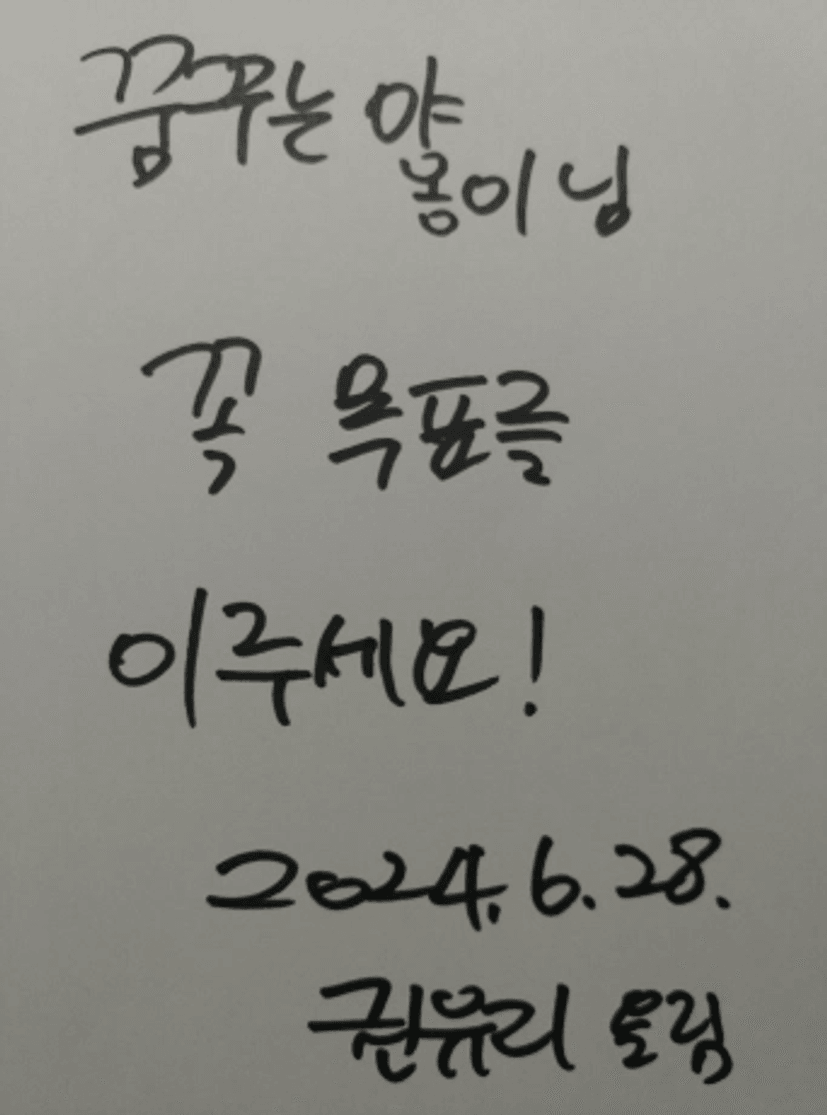 꿈꾸는 야
옹이 님
꼭 목표를
이루세요!
2024.6.28.
권유리 드림